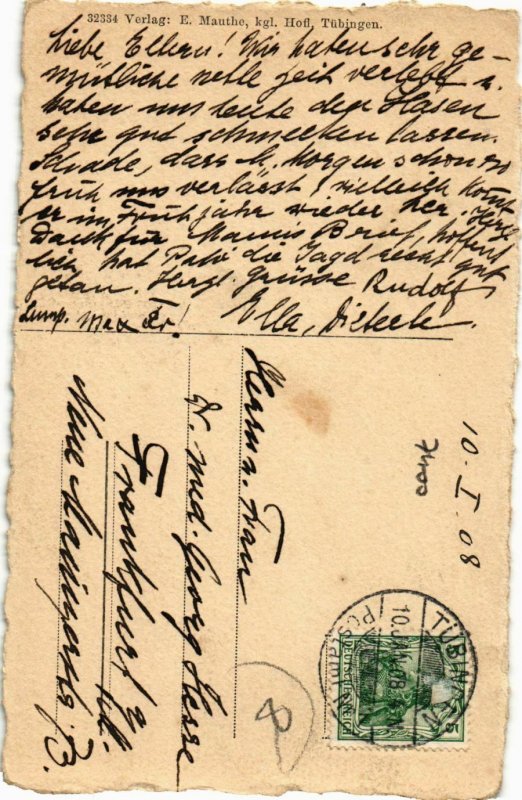 32334 Verlag: E. Mauthe, kgl. Hofl, Tübingen.
Liebe Eltern! Wir haben sehr ge-
mütliche nette Zeit verlebt u.
haben uns heute den Hasen
sehr gut schmecken lassen.
Schade, dass M. Morgen schon so
früh uns verlässt! Vielleicht kommt
er im Frühjahr wieder her. Herzl.
Dank für Mamis Brief, hoffent
lich hat Papi die Jagd recht gut
getan. Herzl. grüsse Rudolf
Ella,
Max
Herrn u. Frau
Dr. med. Georg Hesse
Frankfurt a/
M.
10. I. 08
8
TÜBINGEN
10.
DEUTSCHES REICH